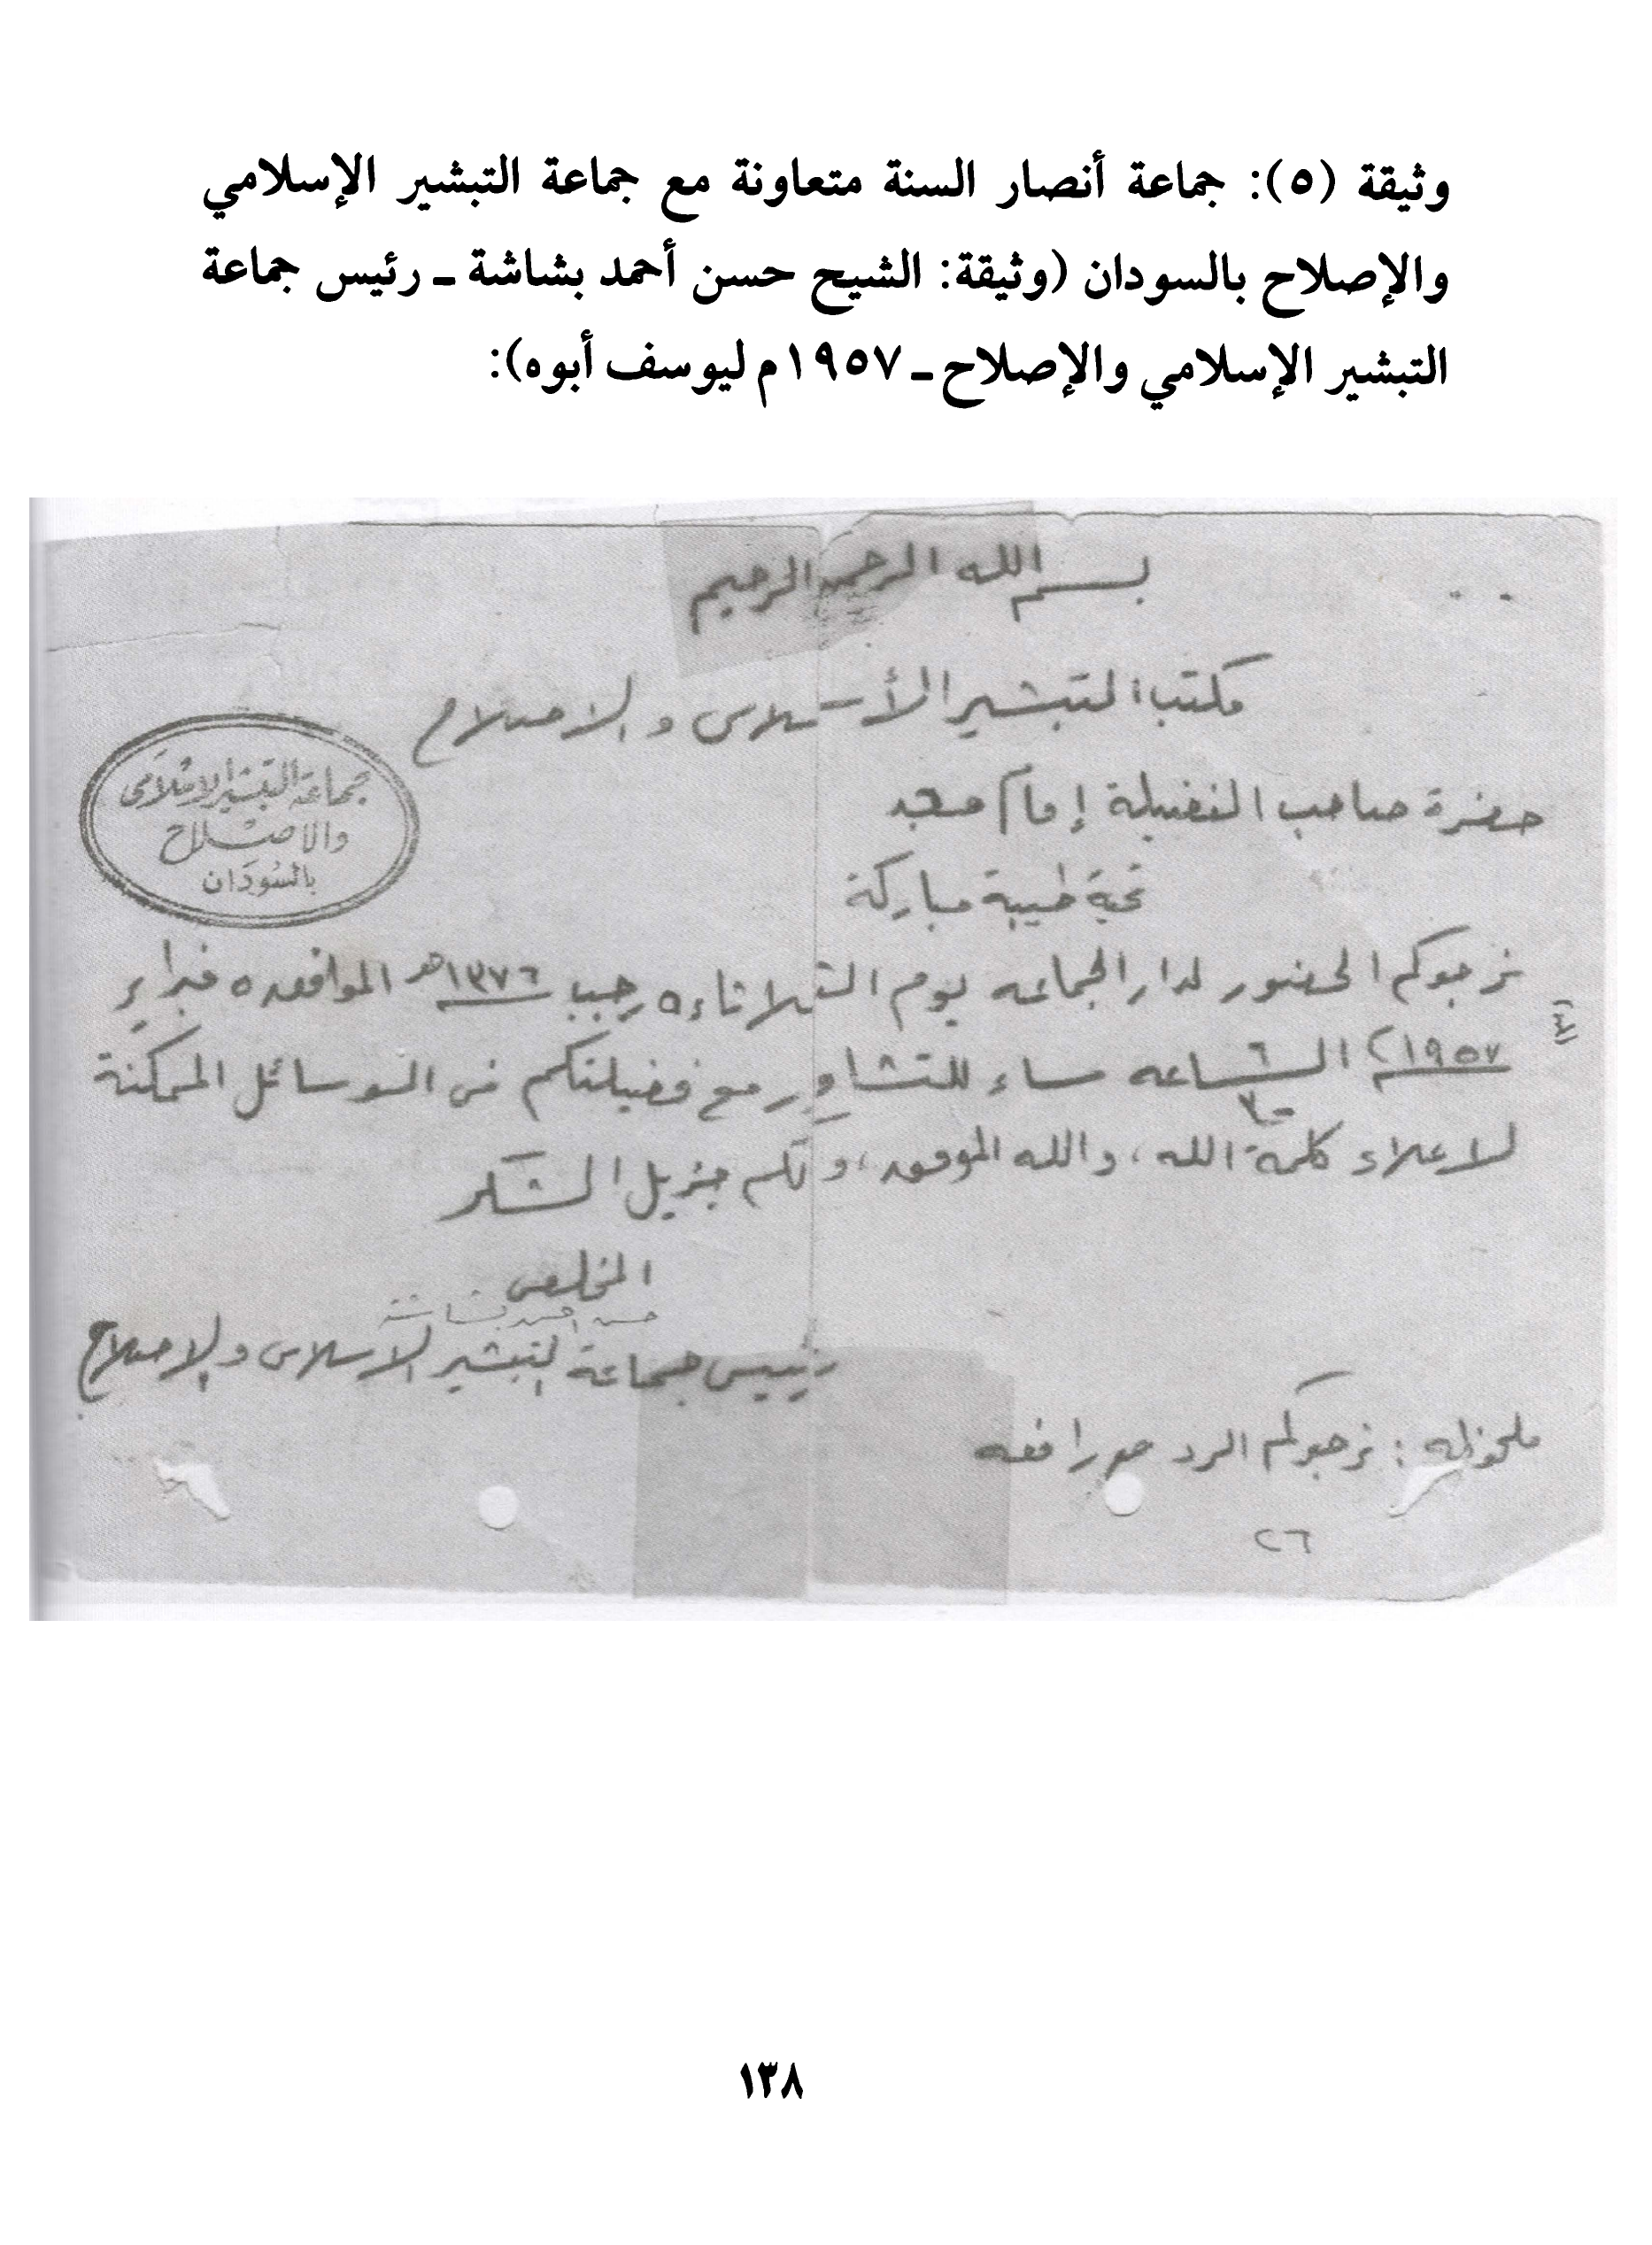 وثيقة (٥): جماعة أنصار السنة متعاونة مع جماعة التبشير الإسلامي
والإصلاح بالسودان (وثيقة: الشيخ حسن أحمد بشاشة ـ رئيس جماعة
التبشير الإسلامي والإصلاح ـ ١٩٥٧م ليوسف أبوه):
بسم الله الرحمن الرحيم
مكتب التبشير الأسلامى والاصلاح
جماعة التبشير الاسلامى
والاصلاح
بالسودان
حضرة صاحب الفضيلة إمام مسجد
تحية طيبة مباركة
نرجوكم الحضور لدار الجماعه يوم الثلاثاء ٥ رجب ١٣٧٦هـ الموافق ٥ فبراير
١٩٥٧م الساعه ٦ مساء للتشاور مع فضيلتكم فى الوسائل الممكنة
٣٠
لاعلاء كلمة الله، والله الموفق، ولكم جزيل الشكر
المخلص
حسن احمد بشاشة
رئيس جماعة التبشير الاسلامى والاصلاح
ملحوظه: نرجوكم الرد
٢٦
١٣٨